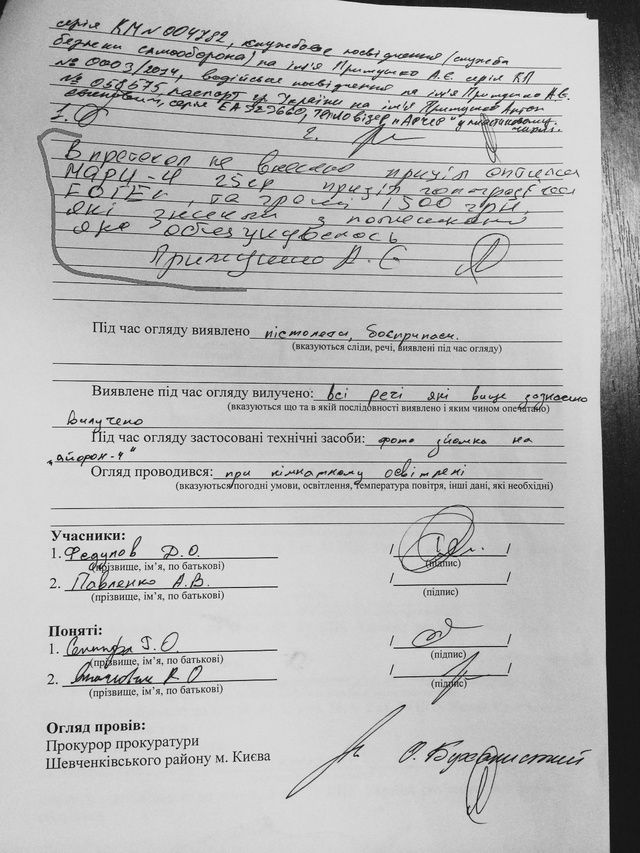 серія КМ № 004782, службове посвідчення (служба
безпеки самооборона) на ім'я Примушко А.Є. серія КП
№ 0003/2014, водійське посвідчення на ім'я Примушко А.Є.
№ 058575 паспорт гр. України на ім'я Примушко Антон
серія ЕА
1.
2.
В протокол не внесено приціл оптичн
МАРЧ-4 25ск приціл
та гроші 1500 грн.
які зникли з помешкані
яке обшукувалось
Примушко А. Є
Під час огляду виявлено пістолети, боєприпаси.
(вказуються сліди, речі, виявлені під час огляду)
Виявлене під час огляду вилучено: всі речі які вище зазначено
(вказуються що та в якій послідовності виявлено і яким чином опечатано)
вилучено
Під час огляду застосовані технічні засоби: фото зйомка на
"айфон-4"
Огляд проводився: при кімнатному освітлені
(вказуються погодні умови, освітлення, температура повітря, інші дані, які необхідні)
Учасники:
1. Федулов Д.О. / /
(прізвище, ім'я, по батькові) (підпис)
2. Павленко А.В. / /
(прізвище, ім'я, по батькові) (підпис)
Поняті:
1. Г.О. / /
(прізвище, ім'я, по батькові) (підпис)
2. К О / /
(прізвище, ім'я, по батькові) (підпис)
Огляд провів:
Прокурор прокуратури
Шевченківського району м. Києва О.